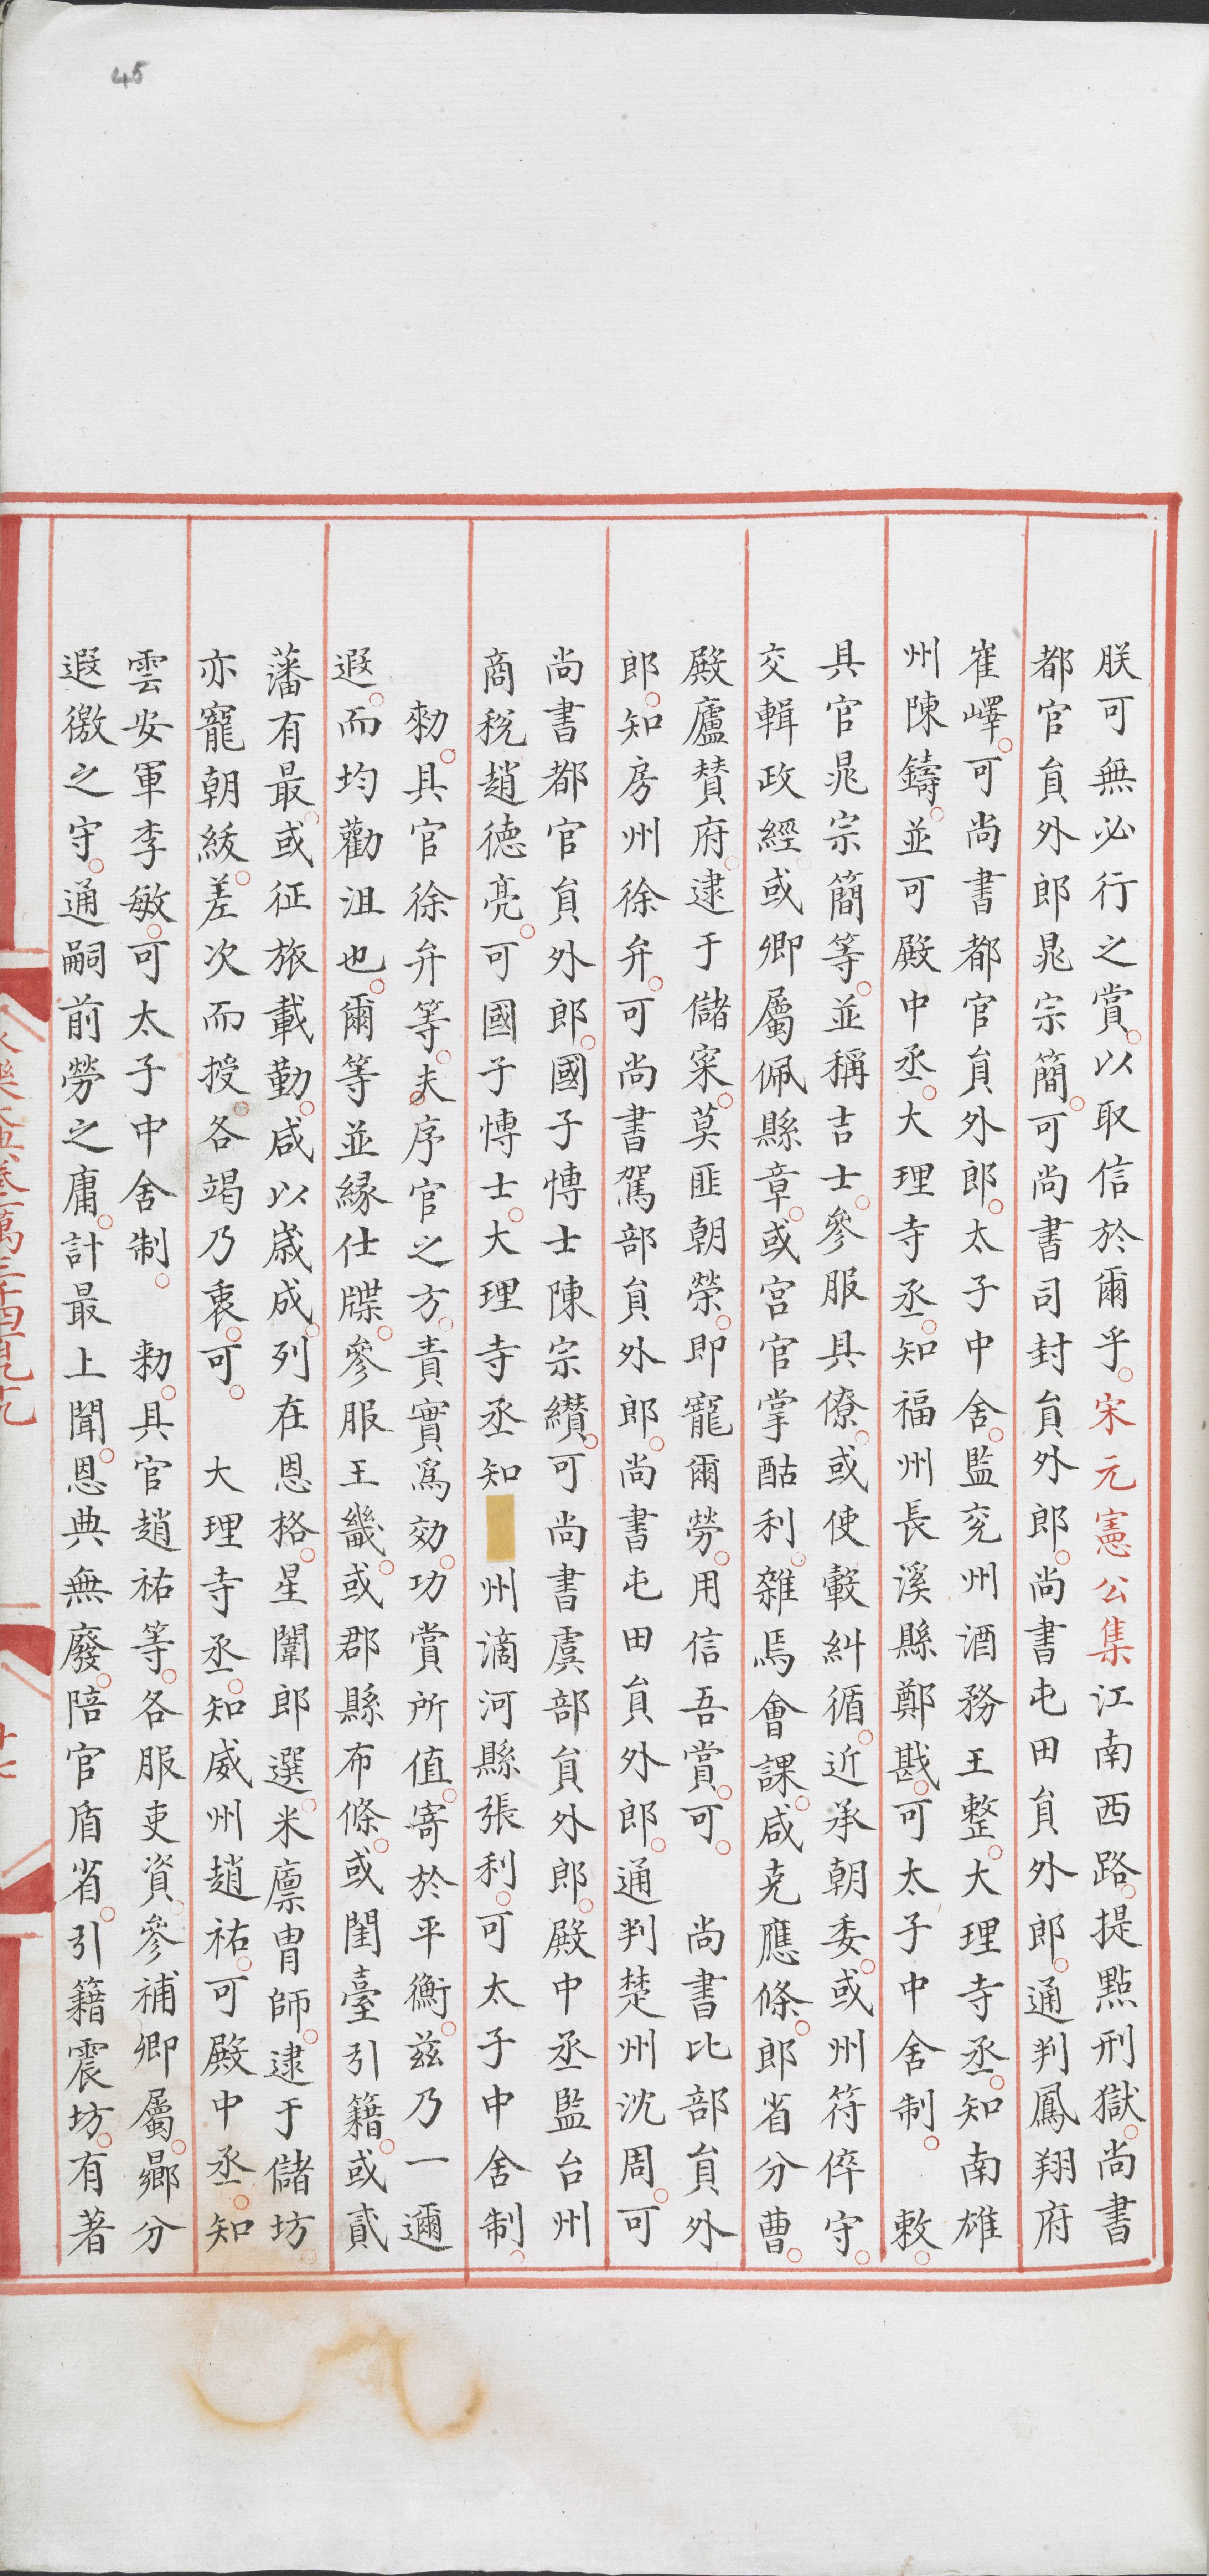 朕可無必行之賞。以取信於爾乎。宋元憲公集江南西路。提點刑獄。尚書
都官員外郎晁宗簡。可尚書司封員外郎。尚書屯田員外郎。通判鳳翔府
崔嶧。可尚書都官員外郎。太子中舍。監兖州酒務王整。大理寺丞。知南雄
州陳鑄。並可殿中丞。大理寺丞。知福州長溪縣鄭戡。可太子中舍制。　敕。
具官晁宗簡等。並稱吉士。參服具僚。或使轂糾循。近承朝委。或州符倅守。
交輯政經。或卿屬佩縣章。或宮官掌酤利。雜焉會課。咸克應條。郎省分曹。
殿廬賛府。逮于儲寀。莫匪朝榮。即寵爾勞。用信吾賞。可。　尚書比部員外
郎。知房州徐弁。可尚書駕部員外郎。尚書屯田員外郎。通判楚州沈周。可
尚書都官員外郎。國子愽士陳宗纉。可尚書虞部員外郎。殿中丞監台州
商稅趙德亮。可國子愽士。大理寺丞知州滴河縣張利。可太子中舍制。
勑。具官徐弁等。夫序官之方。責實爲効。功賞所值。寄於平衡。兹乃一邇
遐。而均勸沮也。爾等並縁仕牒。參服王畿。或郡縣布條。或閨臺引籍。或貳
藩有最。或征旅載勤。咸以嵗成。列在恩格。星闈郎選。米廪胄師。逮于儲坊。
亦寵朝綏。差次而授。各竭乃衷。可。　大理寺丞。知威州趙祐。可殿中丞。知
雲安軍李敏。可太子中舍制。　勑。具官趙祐等。各服吏資。參補卿屬。鄉分
遐徼之守。通嗣前勞之庸。計最上聞。恩典無廢。陪官盾省。引籍震坊。有著
永樂大典卷二萬三千四百九十九
十七
45